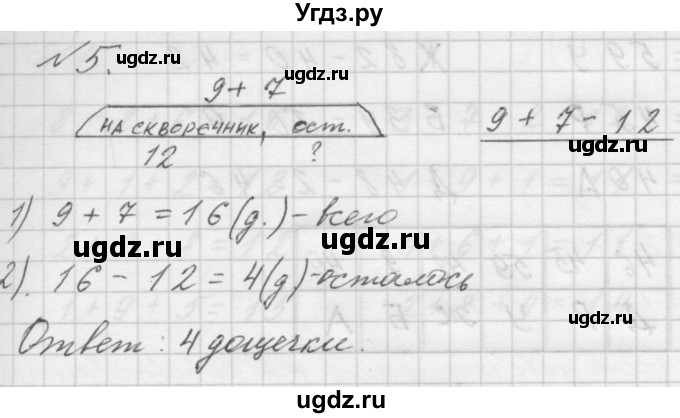 Угдз.ру
№5.
9 + 7
на скворечник, ост.
12 ?
9 + 7 - 12
1) 9 + 7 = 16 (д.) - всего
2). 16 - 12 = 4 (д) - осталось
Ответ: 4 дощечки.
ugdz.ru
ugdz.ru
ugdz.ru
ugdz.ru
ugdz.ru
ugdz.ru
ugdz.ru
ugdz.ru
ugdz.ru